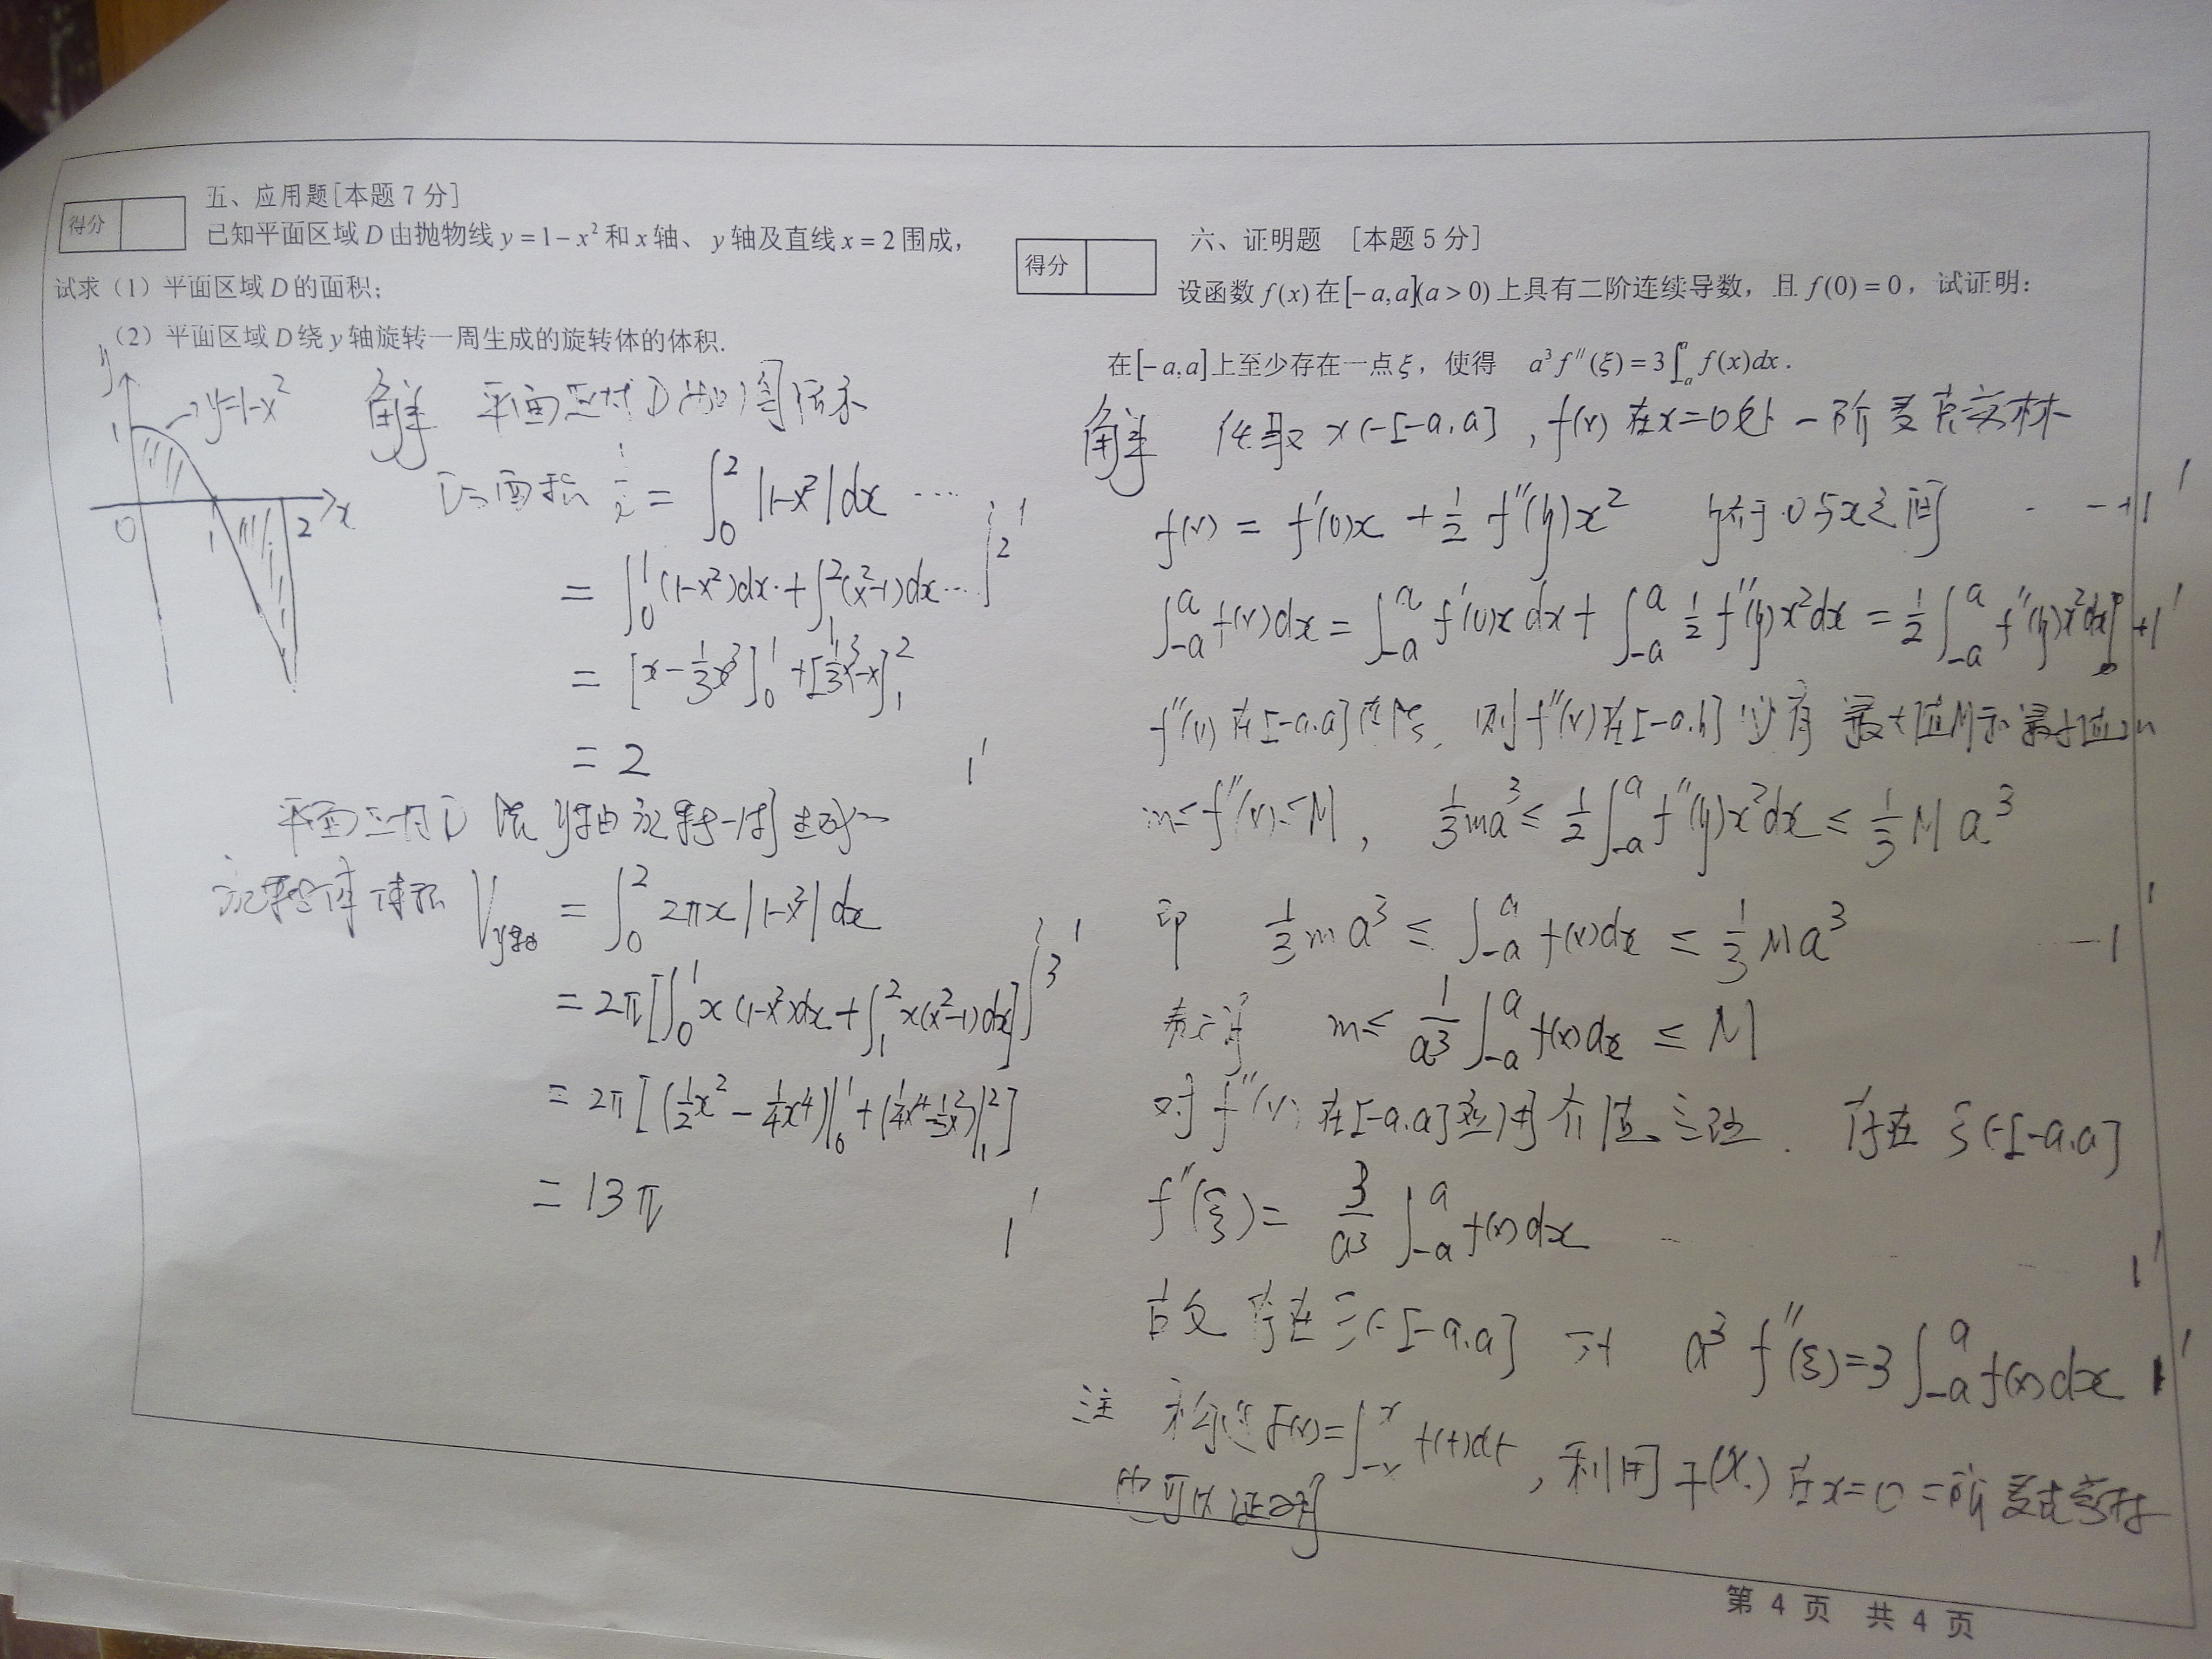 五、应用题[本题7分]
得分
已知平面区域D由抛物线y=1-x²和x轴、y轴及直线x=2围成,
试求(1)平面区域D的面积;
(2)平面区域D绕y轴旋转一周生成的旋转体的体积.
y
y=1-x²
1
0
1
2
x
解 平面区域D如图所示
面积 = ∫₀² |1-x²|dx ⋯ 1'
= ∫₀¹(1-x²)dx+∫₁²(x²-1)dx ⋯ 2'
= [x-1/3x³]₀¹+[1/3x³-x]₁²
= 2 1'
平面区域D绕y轴旋转一周生成
旋转体体积 V_y轴 = ∫₀² 2πx|1-x²|dx
= 2π[∫₀¹x(1-x²)dx+∫₁²x(x²-1)dx] 3'
= 2π[(1/2x²-1/4x⁴)|₀¹+(1/4x⁴-1/2x²)|₁²]
= 13π 1'
六、证明题 [本题5分]
得分
设函数f(x)在[-a,a](a>0)上具有二阶连续导数,且f(0)=0,试证明:
在[-a,a]上至少存在一点ξ,使得 a³f″(ξ)=3∫₋ₐᵃf(x)dx.
解 任取x∈[-a,a],f(x)在x=0处一阶麦克劳林
f(x) = f′(0)x+1/2f″(η)x² η介于0与x之间 +1'
∫₋ₐᵃf(x)dx=∫₋ₐᵃf′(0)xdx+∫₋ₐᵃ1/2f″(η)x²dx=1/2∫₋ₐᵃf″(η)x²dx +1'
f″(x)在[-a,a]连续,则f″(x)在[-a,b]必有最大值M和最小值m
m≤f″(x)≤M, 1/3ma³≤1/2∫₋ₐᵃf″(η)x²dx≤1/3Ma³
即 1/3ma³≤∫₋ₐᵃf(x)dx≤1/3Ma³ 1'
m≤1/a³∫₋ₐᵃf(x)dx≤M
对f″(x)在[-a,a]应用介值定理.存在ξ∈[-a,a]
f″(ξ)=3/a³∫₋ₐᵃf(x)dx 1'
故存在ξ∈[-a,a] a³f″(ξ)=3∫₋ₐᵃf(x)dx 1'
注 构造F(x)=∫₋ₓˣf(t)dt,利用F(x)在x=0二阶麦克劳林
也可以证明
第 4 页 共 4 页